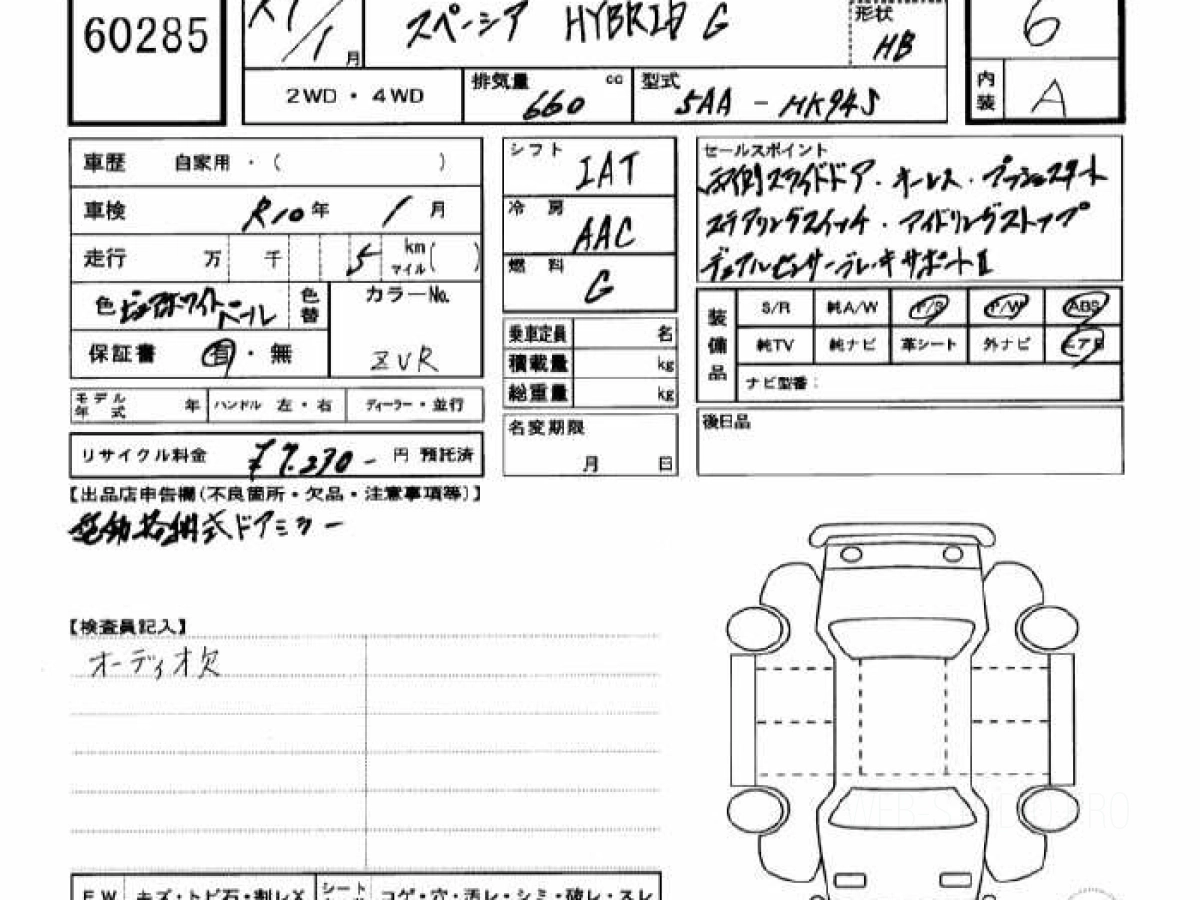 60285
R7/1月
スペーシア HYBRID G
形状
HB
6
2WD・4WD
排気量 660 cc
型式 5AA - MK94S
内装 A
車歴 自家用・( )
車検 R10年 1月
走行 万 千 5 km マイル ( )
色 ピュアホワイトパール 色替
カラーNo. ZVR
保証書 有・無
モデル年式 年 ハンドル 左・右 ディーラー・並行
リサイクル料金 ¥7,270- 円 預託済
シフト IAT
冷房 AAC
燃料 G
乗車定員 名
積載量 kg
総重量 kg
名変期限
月 日
セールスポイント
両側スライドドア・キーレス・プッシュスタート
ステアリングスイッチ・アイドリングストップ
デュアルセンサーブレーキサポートⅡ
装備品
S/R 純A/W P/S P/W ABS
純TV 純ナビ 革シート 外ナビ エアB
ナビ型番:
後日品
【出品店申告欄(不良箇所・欠品・注意事項等)】
電動格納式ドアミラー
【検査員記入】
オーディオ欠
F.W キズ・トビ石・割レX シート コゲ・穴・汚レ・シミ・破レ・スレ